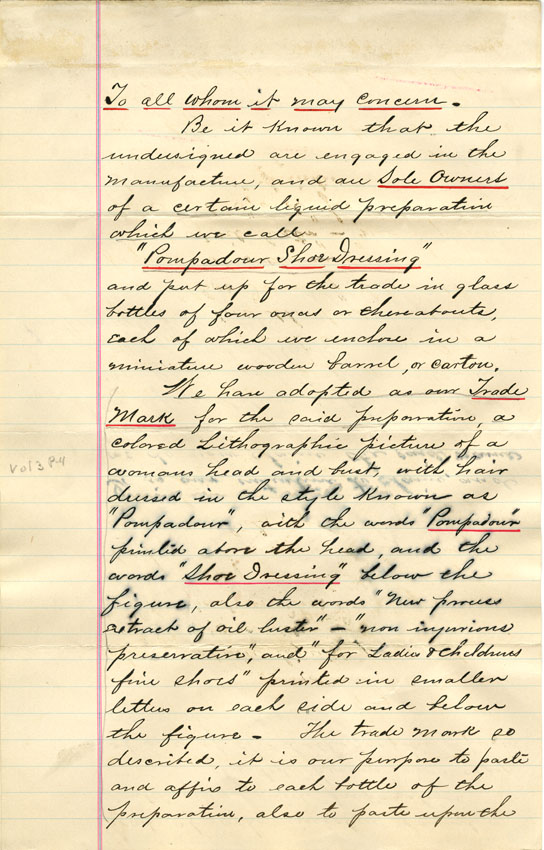 To all whom it may concern.
Be it known that the
undersigned are engaged in the
manufacture, and are Sole Owners
of a certain liquid preparation
which we call
"Pompadour Shoe Dressing"
and put up for the trade in glass
bottles of four onas or thereabouts,
each of which we enclose in a
miniature wooden barrel, or carton.
We have adopted as our Trade
Mark for the said preparation, a
colored Lithographic picture of a
womans head and bust, with hair
dressed in the style known as
"Pompadour", with the words "Pompadour"
printed above the head, and the
words "Shoe Dressing" below the
figure, also the words "New process
extract of oil luster" - "non injurious
preservative", and "for Ladies & Childrens
fine shoes" printed in smaller
letters on each side and below
the figure - The trade mark so
described, it is our purpose to paste
and affix to each bottle of the
preparation, also to paste upon the
Vol 3 P4